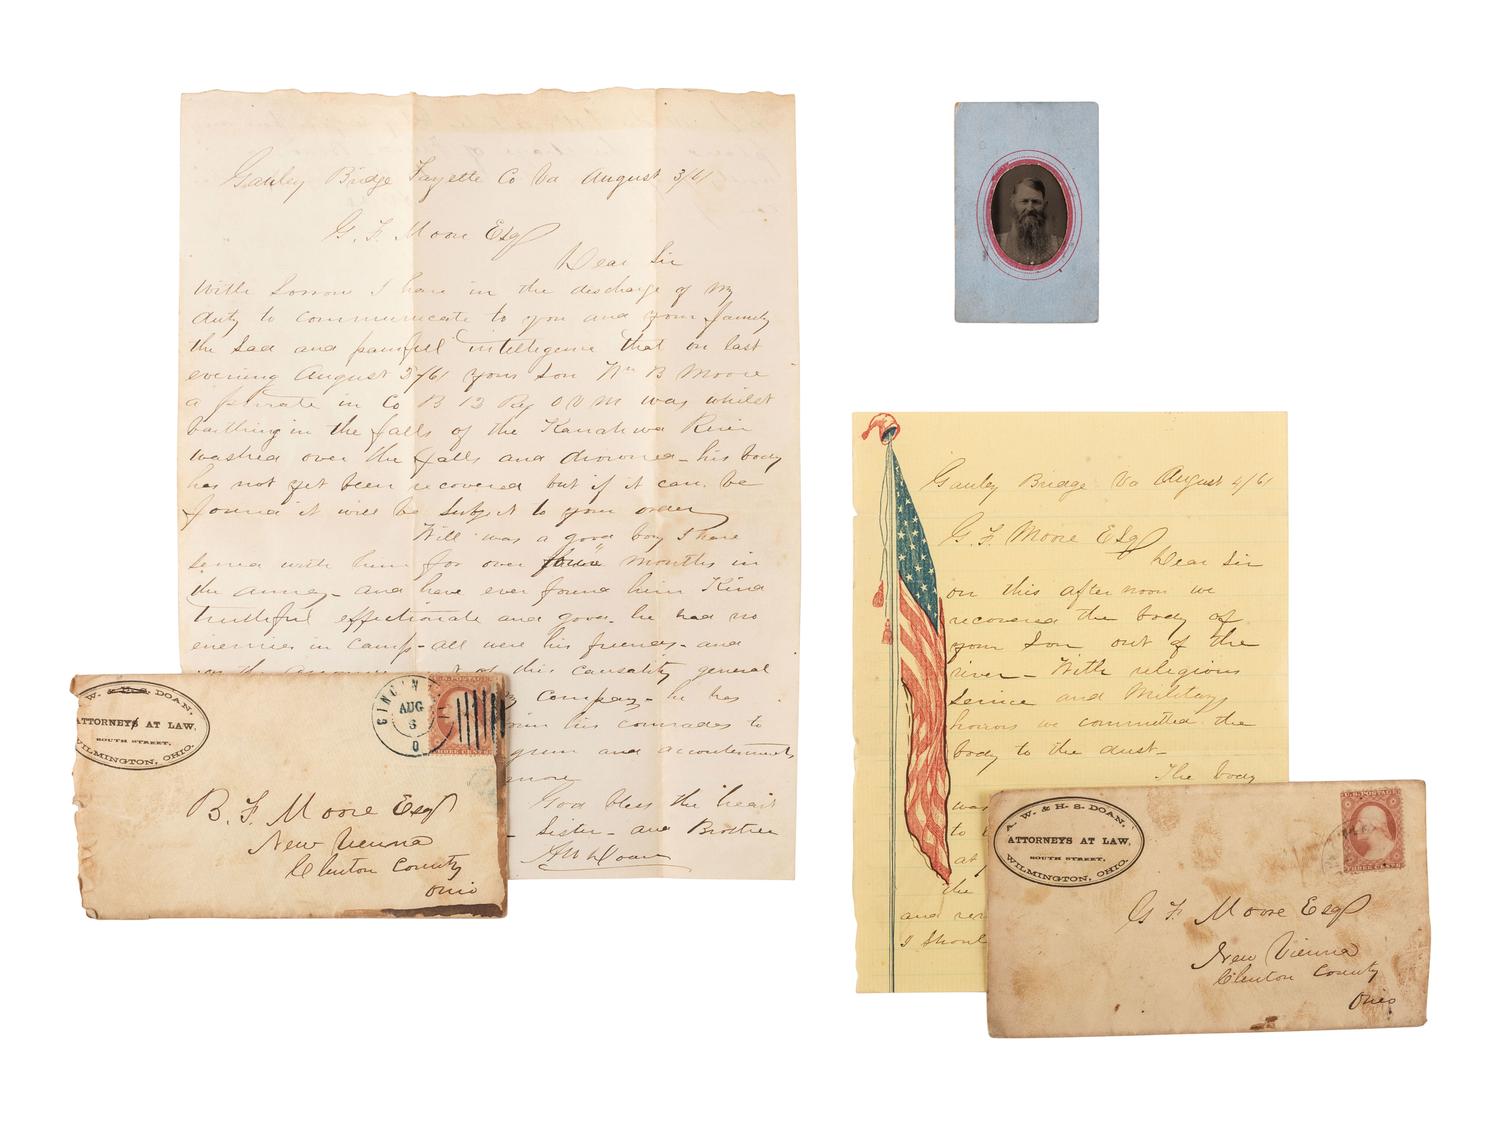 Gauley Bridge Fayette Co Va August 3/61
G. F. Moore Esq
Dear Sir
With Sorrow I have in the discharge of My
duty to communicate to you and your family
the Sad and painfull intelligence that on last
evening August 2/61 your Son Wm B Moore
a private in Co B 12 Reg O V M was whilst
baithing in the falls of the Kanahwa River
washed over the falls and drowned – his body
has not yet been recovered but if it can be
found it will be subject to your order
Will was a good boy I have
served with him for over months in
the army – and have ever found him Kind
truthful effectionate and good. he had no
enemies in Camp – all were his friends – and
on the of this causality general
company – he has
his comrades to
and accoutements
more
God bless the heart
Sister – and Brother
Doan
A. W. & H. S. DOAN,
ATTORNEYS AT LAW,
SOUTH STREET,
WILMINGTON, OHIO.
CINCINNATI
AUG
O
U.S. POSTAGE
THREE CENTS
B. F. Moore Esq
New Vienna
Clinton County
Ohio
Gauley Bridge Va August 4/61
G. F. Moore Esq
Dear Sir
on this after noon we
recovered the body of
your Son out of the
river – With religious
Service and Military
honors we committed the
body to the dust –
The body
was
to
at
the
and
I Shoul
A. W. & H. S. DOAN,
ATTORNEYS AT LAW,
SOUTH STREET,
WILMINGTON, OHIO.
U.S. POSTAGE
THREE CENTS
G F Moore Esq
New Vienna
Clinton County
Ohio